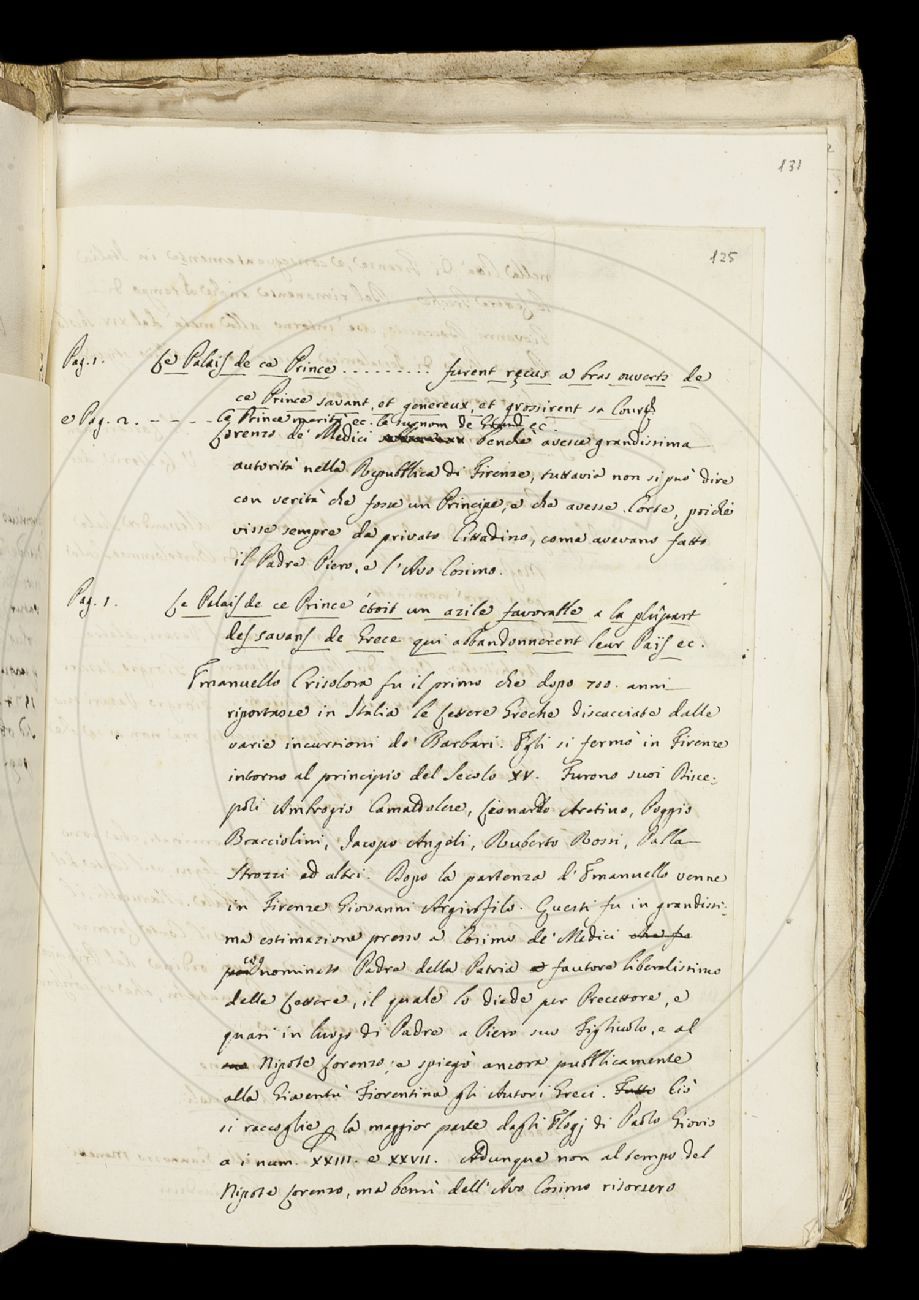 131
125
Pag. 1. Le Palais de ce Prince ......... furent reçus a bras ouverts de
ce Prince savant, et genereux, et grossirent sa Cour
e Pag. 2. - - - - - Ce Prince merita ec. le surnom de Grand ec.
Lorenzo de' Medici benchè avesse grandissima
autorità nella Repubblica di Firenze, tuttavia non si può dire
con verità che fosse un Principe, e che avesse Corte, poichè
visse sempre da privato Cittadino, come avevano fatto
il Padre Piero, e l'Avo Cosimo.
Pag. 1. Le Palais de ce Prince étoit un azile favorable a la plûpart
des savans de Grece qui abbandonnerent leur Païs ec.
Emanuello Crisolora fu il primo che dopo 700. anni
riportasse in Italia le Lettere Greche discacciate dalle
varie incursioni de' Barbari. Egli si fermò in Firenze
intorno al principio del Secolo XV. Furono suoi Disce-
poli Ambrogio Camaldolese, Leonardo Aretino, Poggio
Bracciolini, Jacopo Angeli, Ruberto Rossi, Palla
Strozzi ed altri. Dopo la partenza d'Emanuello venne
in Firenze Giovanni Argirofilo. Questi fu in grandissi-
ma estimazione presso a Cosimo de' Medici che fu
poi cog nominato Padre della Patria e fautore liberalissimo
delle Lettere, il quale lo diede per Precettore, e
quasi in luogo di Padre a Piero suo Figliuolo, e al
suo Nipote Lorenzo; e spiegò ancora pubblicamente
alla Gioventù Fiorentina gli Autori Greci. Tutto Ciò
si raccoglie la maggior parte dagli Elogj di Paolo Giovio
a i num. XXIII. e XXVII. Adunque non al tempo del
Nipote Lorenzo, ma bensì dell'Avo Cosimo risorsero